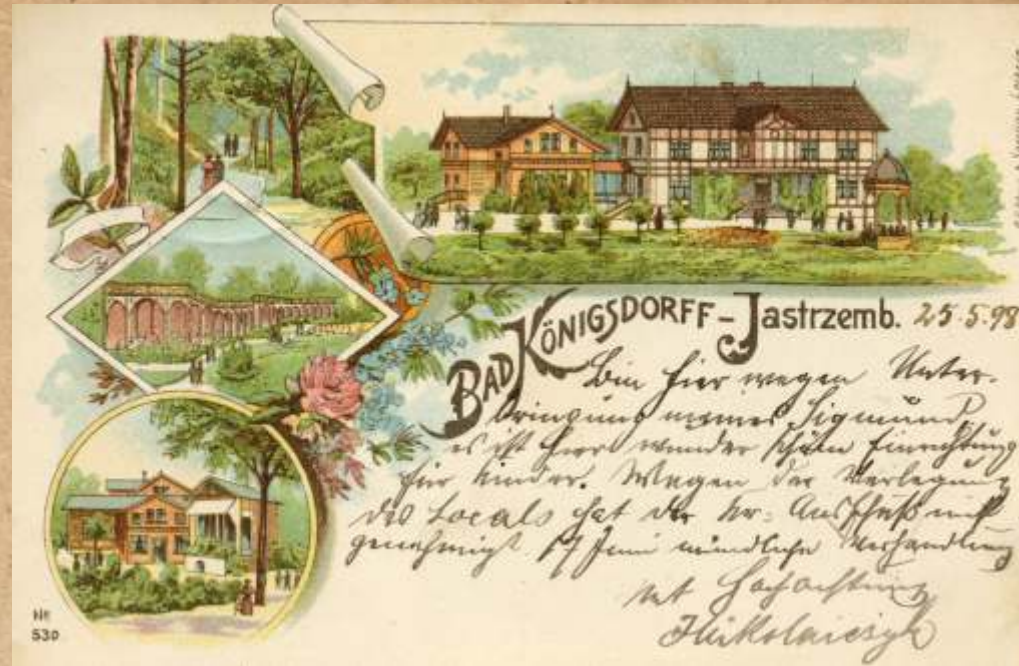 BAD KÖNIGSDORFF-Jastrzemb. 25.5.98
Bin hier wegen Unter-
bringung meines Sigmund,
es ist hier wunder schöne Einrichtung
für Kinder. Wegen der Verlegung
des Locals hat der Kr. Ausschuß
genehmigt 17 Juni mündliche Verhandlung
mit Hochachtung
No
530